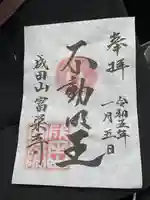 奉拝
令和五年
一月五日
不動明王
成田山富栄寺